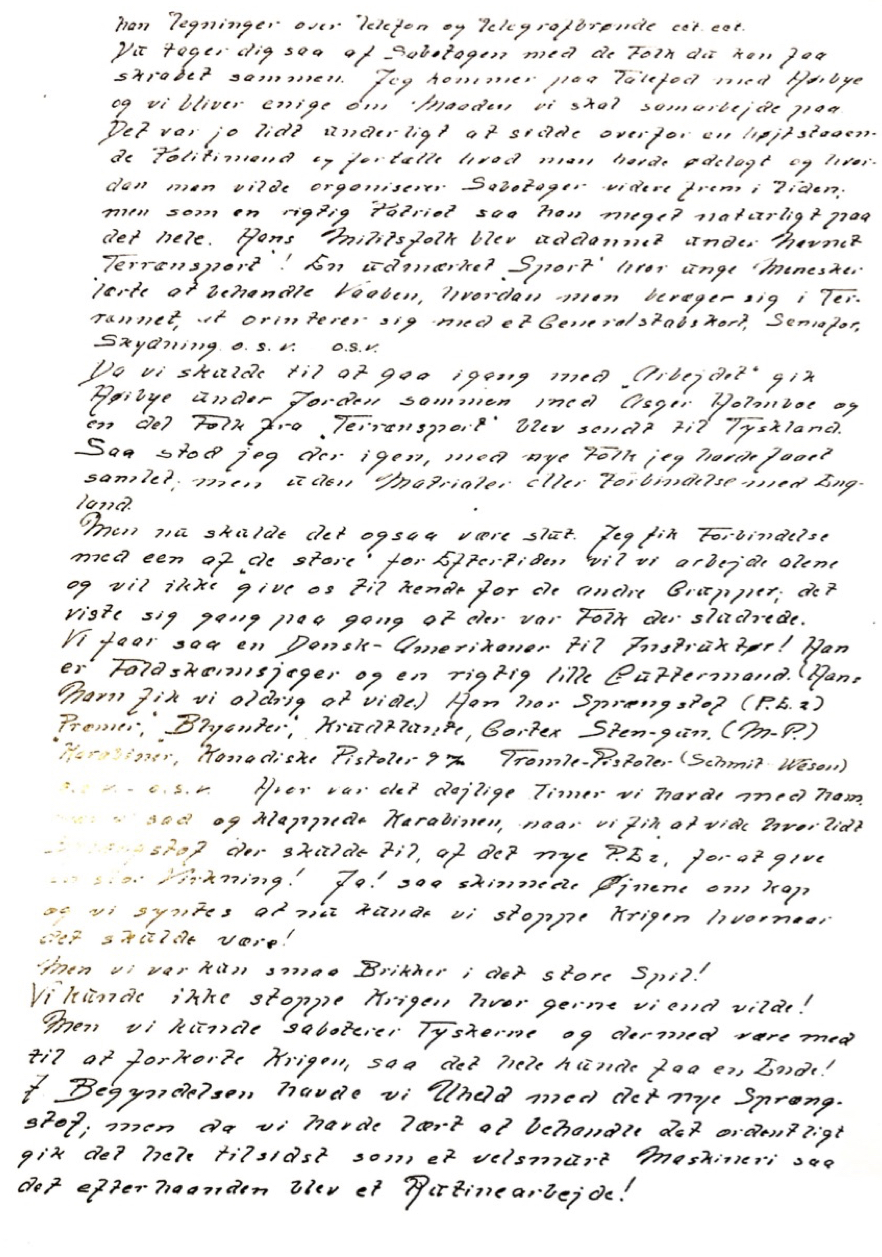 han Tegninger over Telefon og Telegrafbrønde ect. ect.
Du tager dig saa af Sabotagen med de Folk du kan faa
skrabet sammen. Jeg kommer paa Talefod med Højbye
og vi bliver enige om Maaden vi skal samarbejde paa.
Det var jo lidt underligt at sidde overfor en højtstaaen-
de Politimand og fortælle hvad man havde ødelagt og hvor-
dan man vilde organiserer Sabotager videre frem i Tiden;
men som en rigtig Patriot saa han meget naturligt paa
det hele. Hans Militsfolk blev uddannet under Navnet
"Terrænsport"! En udmærket "Sport" hvor unge Menesker
lærte at behandle Vaaben, hvordan man bevæger sig i Ter-
rænnet, at orinterer sig med et Generalstabskort, Semafor,
Skydning o.s.v. o.s.v.
Da vi skulde til at gaa igang med "Arbejdet" gik
Højbye under Jorden sammen med Asger Holmboe og
en del Folk fra "Terrænsport" blev sendt til Tyskland.
Saa stod jeg der igen, med nye Folk jeg havde faaet
samlet; men uden Matrialer eller Forbindelse med Eng-
land.
Men nu skulde det ogsaa være slut. Jeg fik Forbindelse
med een af "de store" for Eftertiden vil vi arbejde alene
og vil ikke give os til kende for de andre Grupper; det
viste sig gang paa gang at der var Folk der sludrede.
Vi faar saa en Dansk-Amerikaner til Instruktør! Han
er Faldskærmsjæger og en rigtig lille Guttermand. (Hans
Navn fik vi aldrig at vide.) Han har Sprængstof (P.E.2)
"Promer", "Blyanter", Krudtlunte, Cortex Sten-gun. (M-P.)
Karabiner, Kanadiske Pistoler 9 7/m Tromle-Pistoler (Schmit Weson)
o.s.v. - o.s.v. Hvor var det dejlige Timer vi havde med ham,
sad og klappede Karabinen, naar vi fik at vide hvor lidt
Sprængstof der skulde til, af det nye P.E.2, for at give
en stor Virkning! Ja! saa skinnede Øjnene om kap
og vi syntes at nu kunde vi stoppe Krigen hvornaar
det skulde være!
Men vi var kun smaa Brikker i det store Spil!
Vi kunde ikke stoppe Krigen hvor gerne vi end vilde!
Men vi kunde saboterer Tyskerne og dermed være med
til at forkorte Krigen, saa det hele kunde faa en Ende!
I Begyndelsen havde vi Uheld med det nye Spræng-
stof; men da vi havde lært at behandle det ordentligt
gik det hele tilsidst som et velsmurt Maskineri saa
det efterhaanden blev et Rutinearbejde!